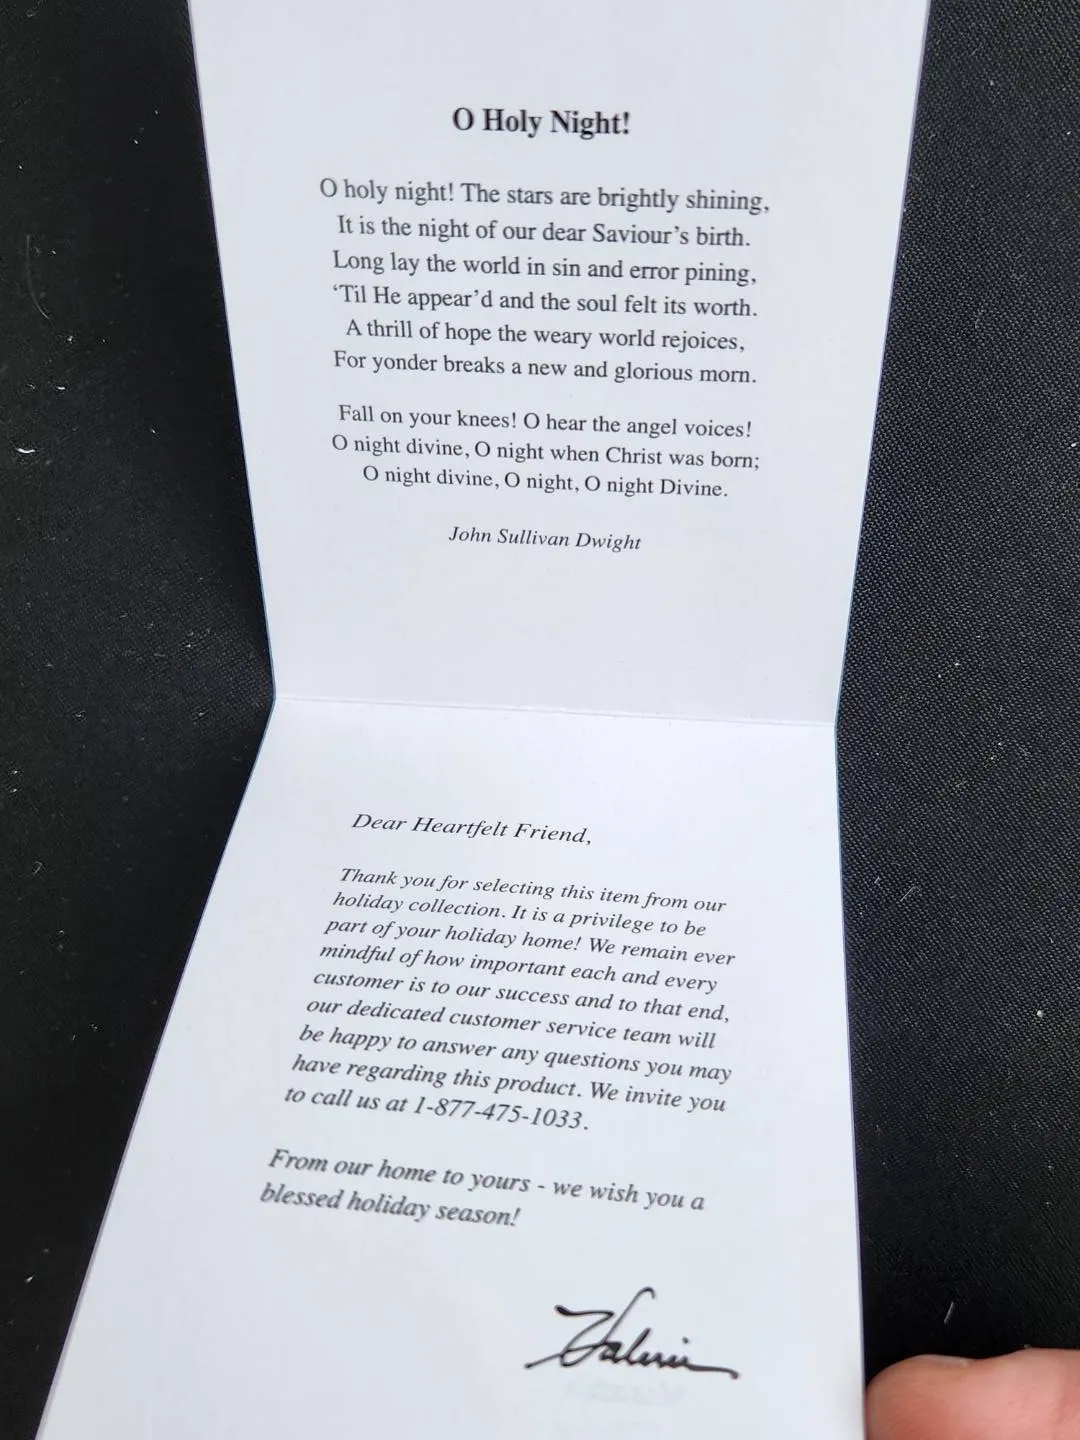 O Holy Night!
O holy night! The stars are brightly shining,
It is the night of our dear Saviour's birth.
Long lay the world in sin and error pining,
'Til He appear'd and the soul felt its worth.
A thrill of hope the weary world rejoices,
For yonder breaks a new and glorious morn.
Fall on your knees! O hear the angel voices!
O night divine, O night when Christ was born;
O night divine, O night, O night Divine.
John Sullivan Dwight
Dear Heartfelt Friend,
Thank you for selecting this item from our
holiday collection. It is a privilege to be
part of your holiday home! We remain ever
mindful of how important each and every
customer is to our success and to that end,
our dedicated customer service team will
be happy to answer any questions you may
have regarding this product. We invite you
to call us at 1-877-475-1033.
From our home to yours - we wish you a
blessed holiday season!
Valerie